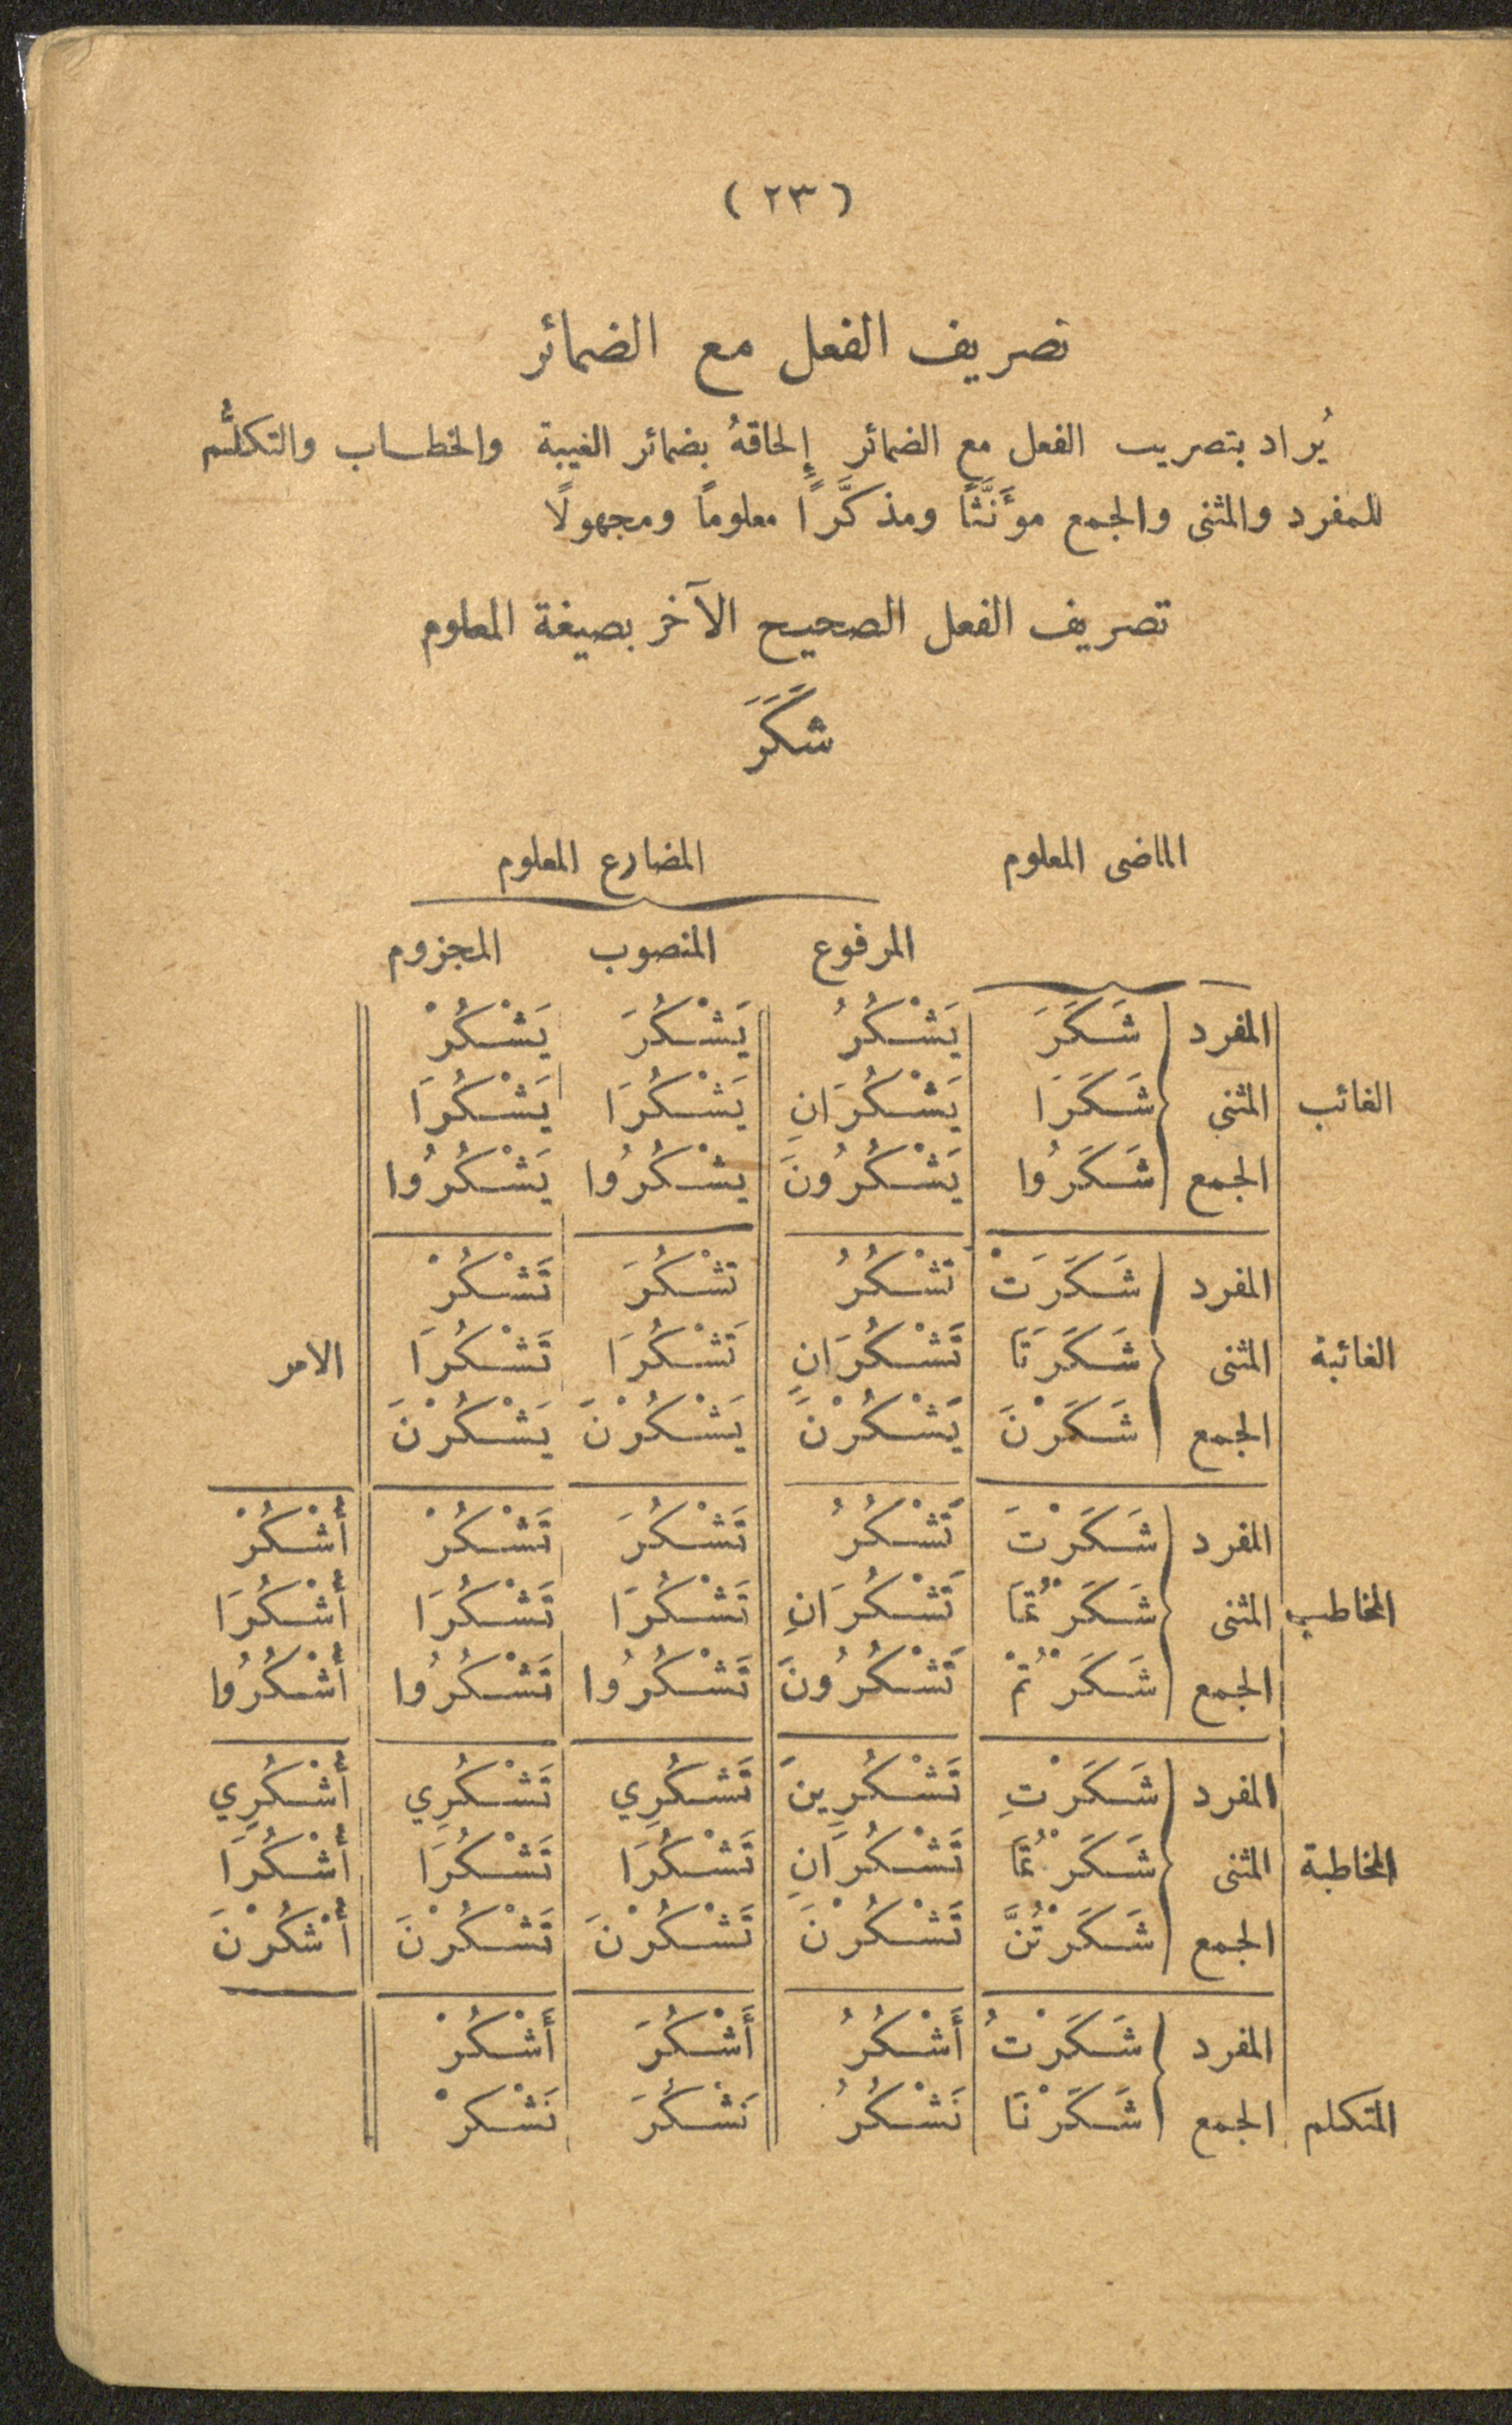 ( ٢٣ )
تصريف الفعل مع الضمائر
يُراد بتصريب الفعل مع الضمائر إِلحاقهُ بضمائر الغيبة والخطاب والتكلُّم
للمفرد والمثنى والجمع موَّنَّثًا ومذكَّرًا معلومًا ومجهولًا
تصريف الفعل الصحيح الآخر بصيغة المعلوم
شَكَرَ
الماضى المعلوم المضارع المعلوم
المرفوع المنصوب المجزوم
المفرد شَكَرَ يَشْكُرُ يَشْكُرَ يَشْكُرْ
الغائب المثنى شَكَرَا يَشْكُرَانِ يَشْكُرَا يَشْكُرَا
الجمع شَكَرُوا يَشْكُرُونَ يشْكُرُوا يَشْكُرُوا
المفرد شَكَرَتْ تَشْكُرُ تشْكُرَ تَشْكُرْ
الغائبة المثنى شَكَرَتَا تَشْكُرَانِ تَشْكُرَا تَشْكُرَا الامر
الجمع شَكَرْنَ يَشْكُرْنَ يَشْكُرْنَ يَشْكُرْنَ
المفرد شَكَرْتَ تَشْكُرُ تَشْكُرَ تَشْكُرْ أُشْكُرْ
المخاطب المثنى شَكَرْتُمَا تَشْكُرَانِ تَشْكُرَا تَشْكُرَا أُشْكُرَا
الجمع شَكَرْتُمْ تَشْكُرُونَ تَشْكُرُوا تَشْكُرُوا أُشْكُرُوا
المفرد شَكَرْتِ تَشْكُرِينَ تَشْكُرِي تَشْكُرِي أُشْكُرِي
المخاطبة المثنى شَكَرْتُمَا تَشْكُرَانِ تَشْكُرَا تَشْكُرَا أُشْكُرَا
الجمع شَكَرْتُنَّ تَشْكُرْنَ تَشْكُرْنَ تَشْكُرْنَ أُشْكُرْنَ
المفرد شَكَرْتُ أَشْكُرُ أَشْكُرَ أَشْكُرْ
المتكلم الجمع شَكَرْنَا نَشْكُرُ نَشْكُرَ نَشْكرْ